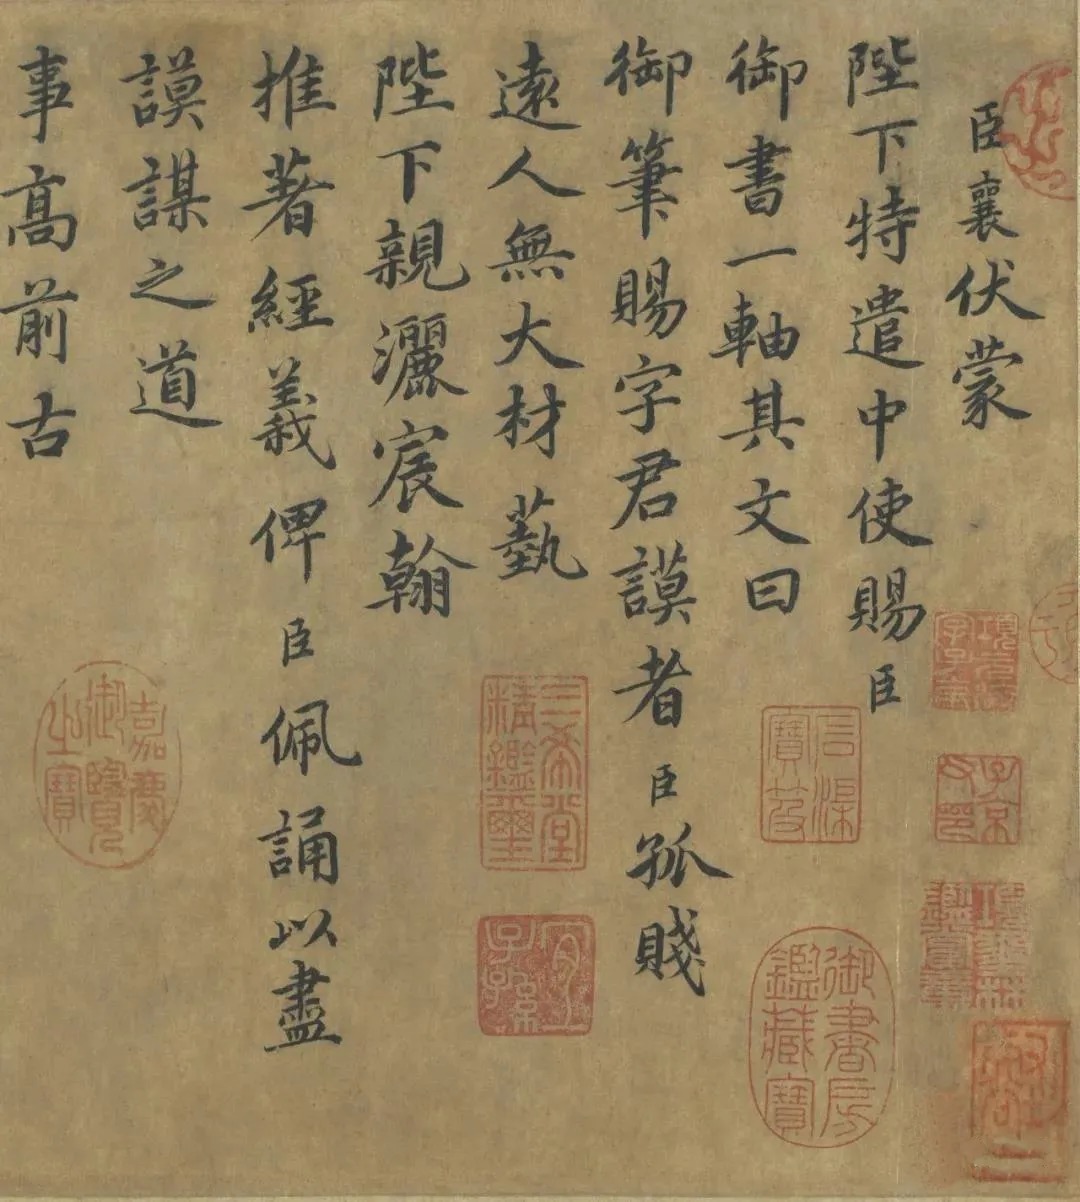 臣襄伏蒙
陛下特遣中使賜臣
御書一軸其文曰
御筆賜字君謨者臣孤賤
遠人無大材藝
陛下親灑宸翰
推著經義俾臣佩誦以盡
謨謀之道
事高前古
子京父印
項墨林鑑賞章
石渠寶笈
御書房鑑藏寶
三希堂精鑑璽
宜子孫
嘉慶御覽之寶